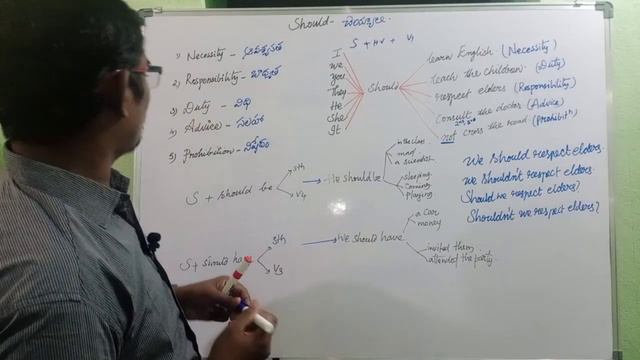 Should - చేయవ్వలె.
1) Necessity - అవశ్యకత
2) Responsibility - బాధ్యత
3) Duty - విధి
4) Advice - సలహా
5) Prohibition - నిషేధం
S + HV + V1
I
We
You
They
He
She
It
Should
learn English (Necessity)
teach the children. (Duty)
respect elders (Responsibility)
Consult the doctor (Advice)
not cross the road. (Prohibitn)
S + should be
sth
V4
He should be
in the class.
mad
a scientist
sleeping
coming
playing
We should respect elders.
We shouldn't respect elders.
Should we respect elders?
Shouldn't we respect elders?
S + should have
sth
V3
We should have
a car
money
invited them
attended the party.